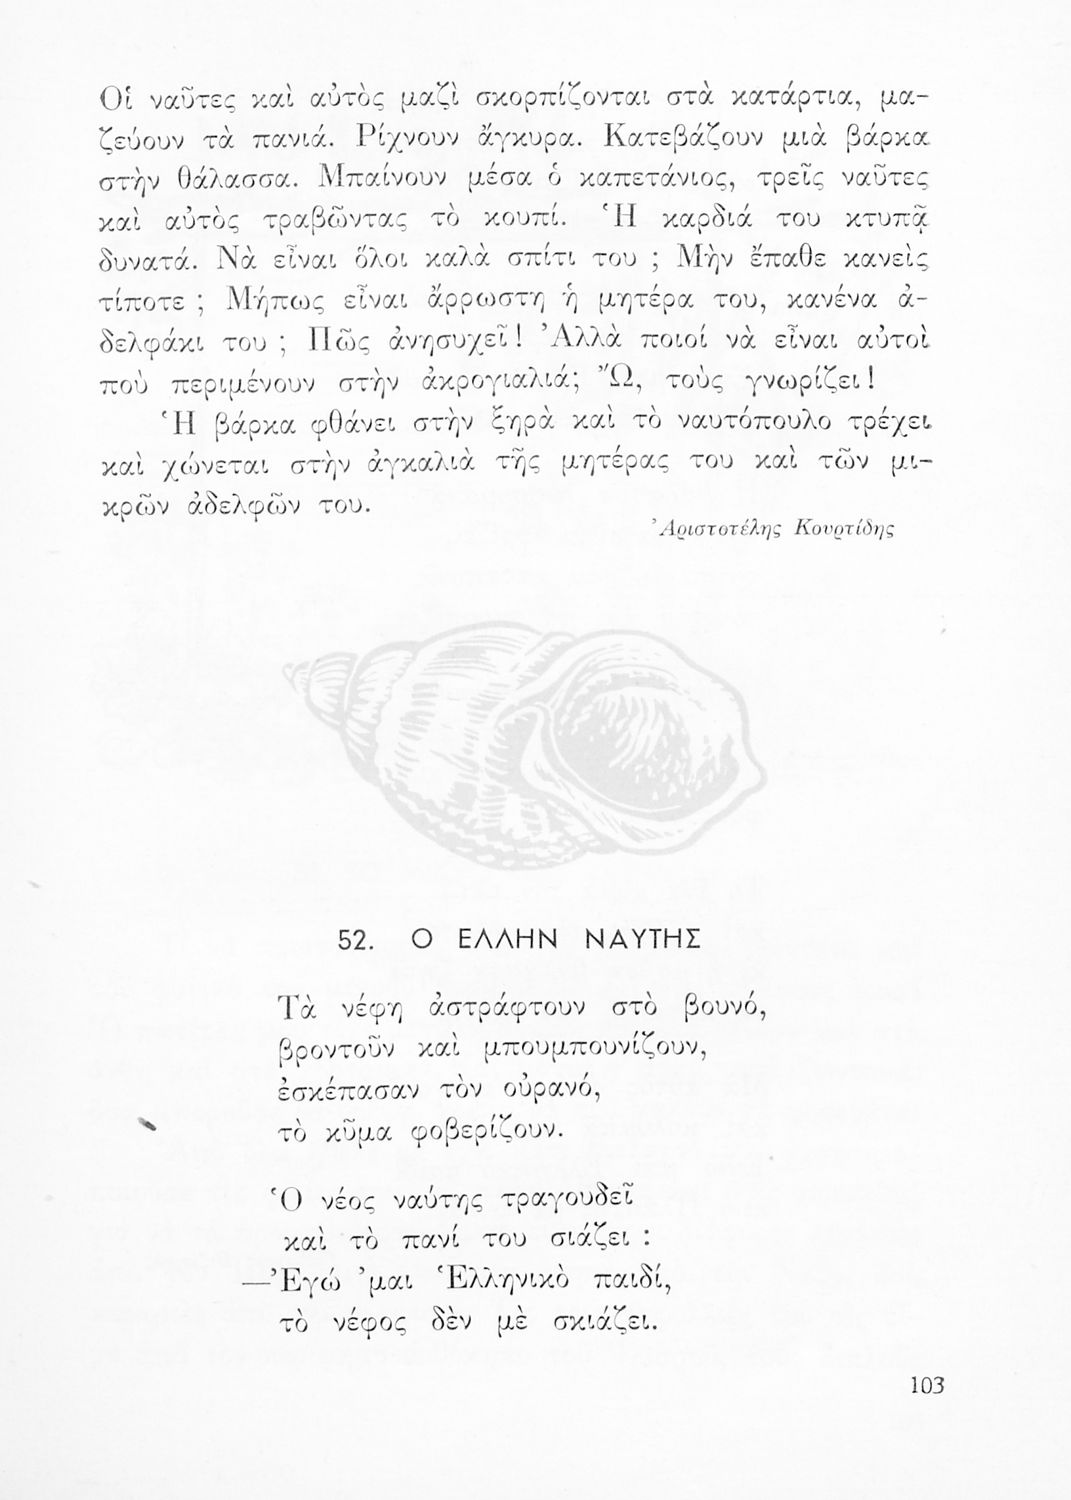 Οἱ ναῦτες καὶ αὐτὸς μαζὶ σκορπίζονται στὰ κατάρτια, μα-
ζεύουν τὰ πανιά. Ρίχνουν ἄγκυρα. Κατεβάζουν μιὰ βάρκα
στὴν θάλασσα. Μπαίνουν μέσα ὁ καπετάνιος, τρεῖς ναῦτες
καὶ αὐτὸς τραβῶντας τὸ κουπί. Ἡ καρδιά του κτυπᾷ
δυνατά. Νὰ εἶναι ὅλοι καλὰ σπίτι του ; Μὴν ἔπαθε κανεὶς
τίποτε ; Μήπως εἶναι ἄρρωστη ἡ μητέρα του, κανένα ἀ-
δελφάκι του ; Πῶς ἀνησυχεῖ! Ἀλλὰ ποιοί νὰ εἶναι αὐτοὶ
ποὺ περιμένουν στὴν ἀκρογιαλιά; Ὤ, τοὺς γνωρίζει!
Ἡ βάρκα φθάνει στὴν ξηρὰ καὶ τὸ ναυτόπουλο τρέχει
καὶ χώνεται στὴν ἀγκαλιὰ τῆς μητέρας του καὶ τῶν μι-
κρῶν ἀδελφῶν του.
Ἀριστοτέλης Κουρτίδης
52. Ο ΕΛΛΗΝ ΝΑΥΤΗΣ
Τὰ νέφη ἀστράφτουν στὸ βουνό,
βροντοῦν καὶ μπουμπουνίζουν,
ἐσκέπασαν τὸν οὐρανό,
τὸ κῦμα φοβερίζουν.
Ὁ νέος ναύτης τραγουδεῖ
καὶ τὸ πανί του σιάζει :
—Ἐγώ ’μαι Ἑλληνικὸ παιδί,
τὸ νέφος δὲν μὲ σκιάζει.
103